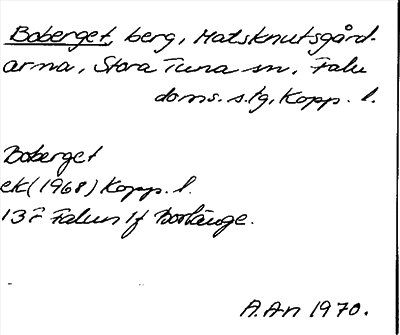 Boberget, berg, Matsknutsgård-
arna, Stora Tuna sn, Falu
doms. s.tg, Kopp. l.
Boberget
ek(1968) Kopp. l.
13F Falun 1f Borlänge.
A.An 1970.